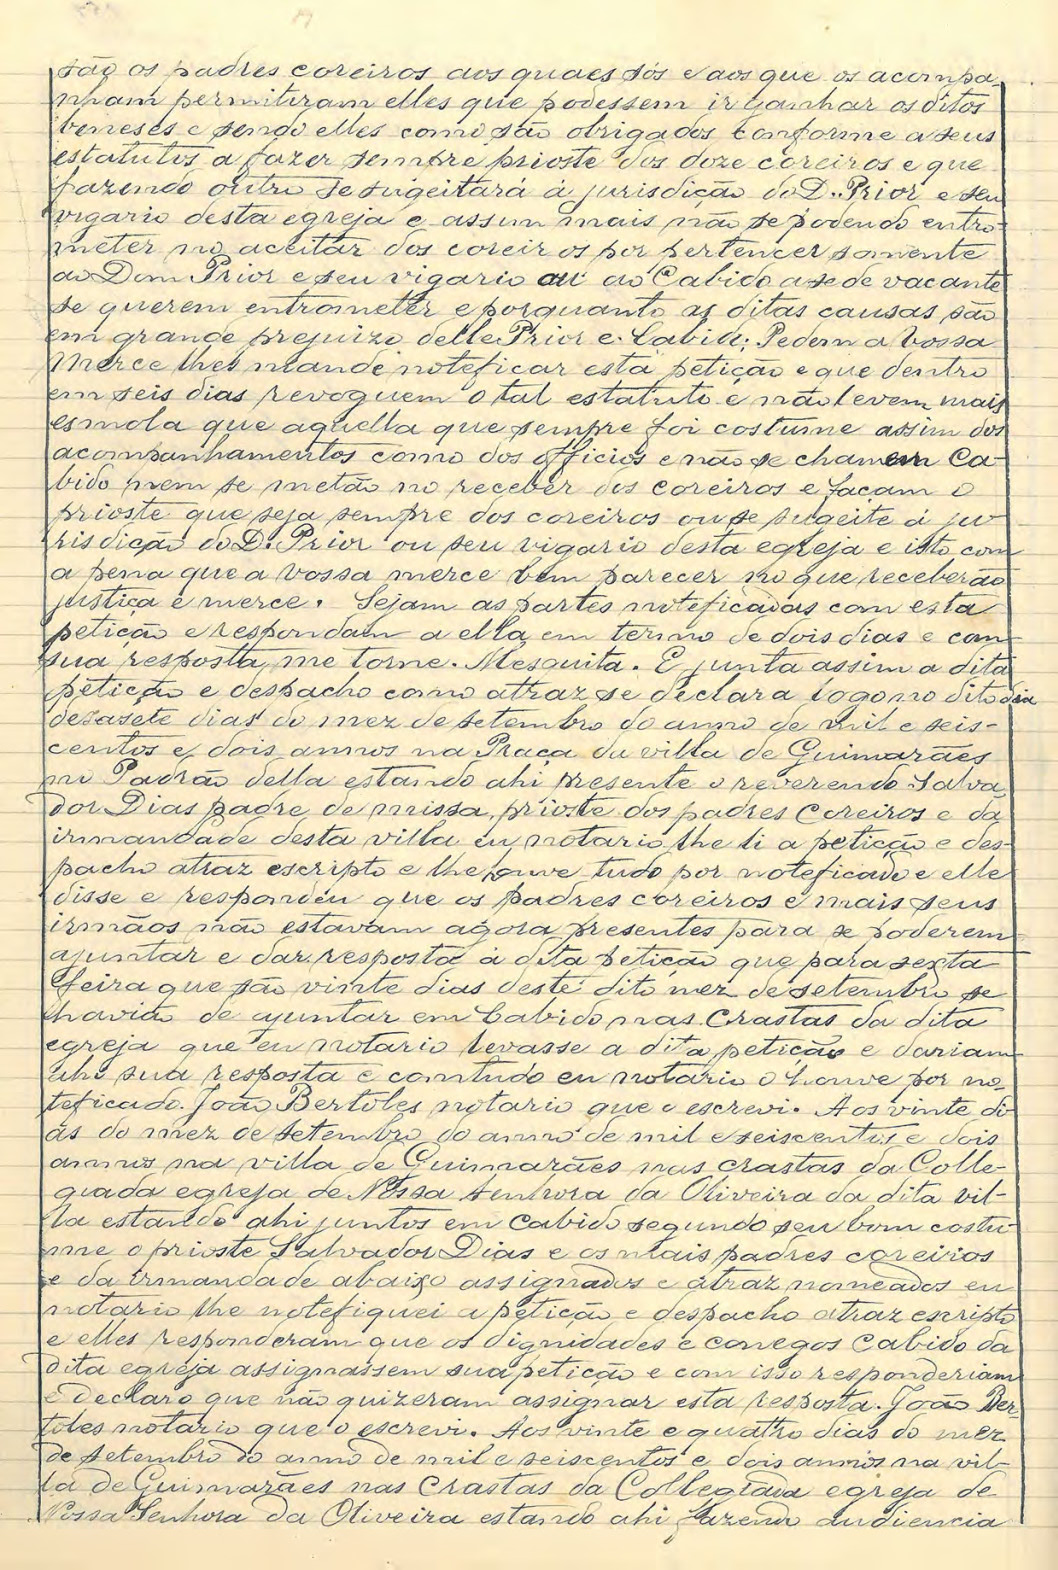 são os padres coreiros aos quaes sós e aos que os acompa-
nham permitiram elles que podessem ir ganhar os ditos
beneses e sendo elles como são obrigados conforme a seus
estatutos a fazer sempre prioste dos doze coreiros e que
fazendo outro se sugeitará á jurisdição do D. Prior e seu
vigario desta egreja e assim mais não se podendo entro-
meter no aceitar dos coreiros por pertencer somente
ao Dom Prior e seu vigario ou ao Cabido a sede vacante
se querem entrometer e porquanto as ditas causas são
em grande prejuizo delle Prior e Cabido; Pedem a Vossa
Merce lhes mande noteficar esta petição e que dentro
em seis dias revoguem o tal estatuto e não levem mais
esmola que aquella que sempre foi costume assim dos
acompanhamentos como dos officios e não se chamem Ca-
bido nem se metão no receber dos coreiros e façam o
prioste que seja sempre dos coreiros ou se sugeite á ju-
risdição do D. Prior ou seu vigario desta egreja e isto com
a pena que a vossa merce bem parecer no que receberão
justiça e merce. Sejam as partes noteficadas com esta
petição e respondam a ella em termo de dois dias e com
sua resposta me torne. Mesquita. E junta assim a dita
petição e despacho como atraz se declara logo no dito dia
desasete dias do mez de setembro do anno de mil e seis-
centos e dois annos na Praça da villa de Guimarães
no Padrão della estando ahi presente o reverendo Salva-
dor Dias padre de missa, prioste dos padres Coreiros e da
irmandade desta villa eu notario lhe li a petição e des-
pacho atraz escripto e lhe houve tudo por noteficado e elle
disse e respondeu que os padres coreiros e mais seus
irmãos não estavam agora presentes para se poderem
ajuntar e dar resposta á dita petição que para sexta
feira que são vinte dias deste dito mez de setembro se
havia de ajuntar em Cabido nas Crastas da dita
egreja que eu notario levasse a dita petição e dariam
ahi sua resposta e comtudo eu notario o houve por no-
teficado. João Bertoles notario que o escrevi. Aos vinte di-
as do mez de setembro do anno de mil e seiscentos e dois
annos na villa de Guimarães nas crastas da Colle-
giada egreja de Nossa Senhora da Oliveira da dita vil-
la estando ahi juntos em cabido segundo seu bom costu-
me o prioste Salvador Dias e os mais padres coreiros
e da irmandade abaixo assignados e atraz nomeados eu
notario lhe notefiquei a petição e despacho atraz escripto
e elles responderam que os dignidades e conegos Cabido da
dita egreja assignassem sua petição e com isso responderiam
e declaro que não quizeram assignar esta resposta. João Ber-
toles notario que o escrevi. Aos vinte e quatro dias do mez
de setembro do anno de mil e seiscentos e dois annos na vil-
la de Guimarães nas Crastas da Collegiada egreja de
Nossa Senhora da Oliveira estando ahi fazendo audiencia